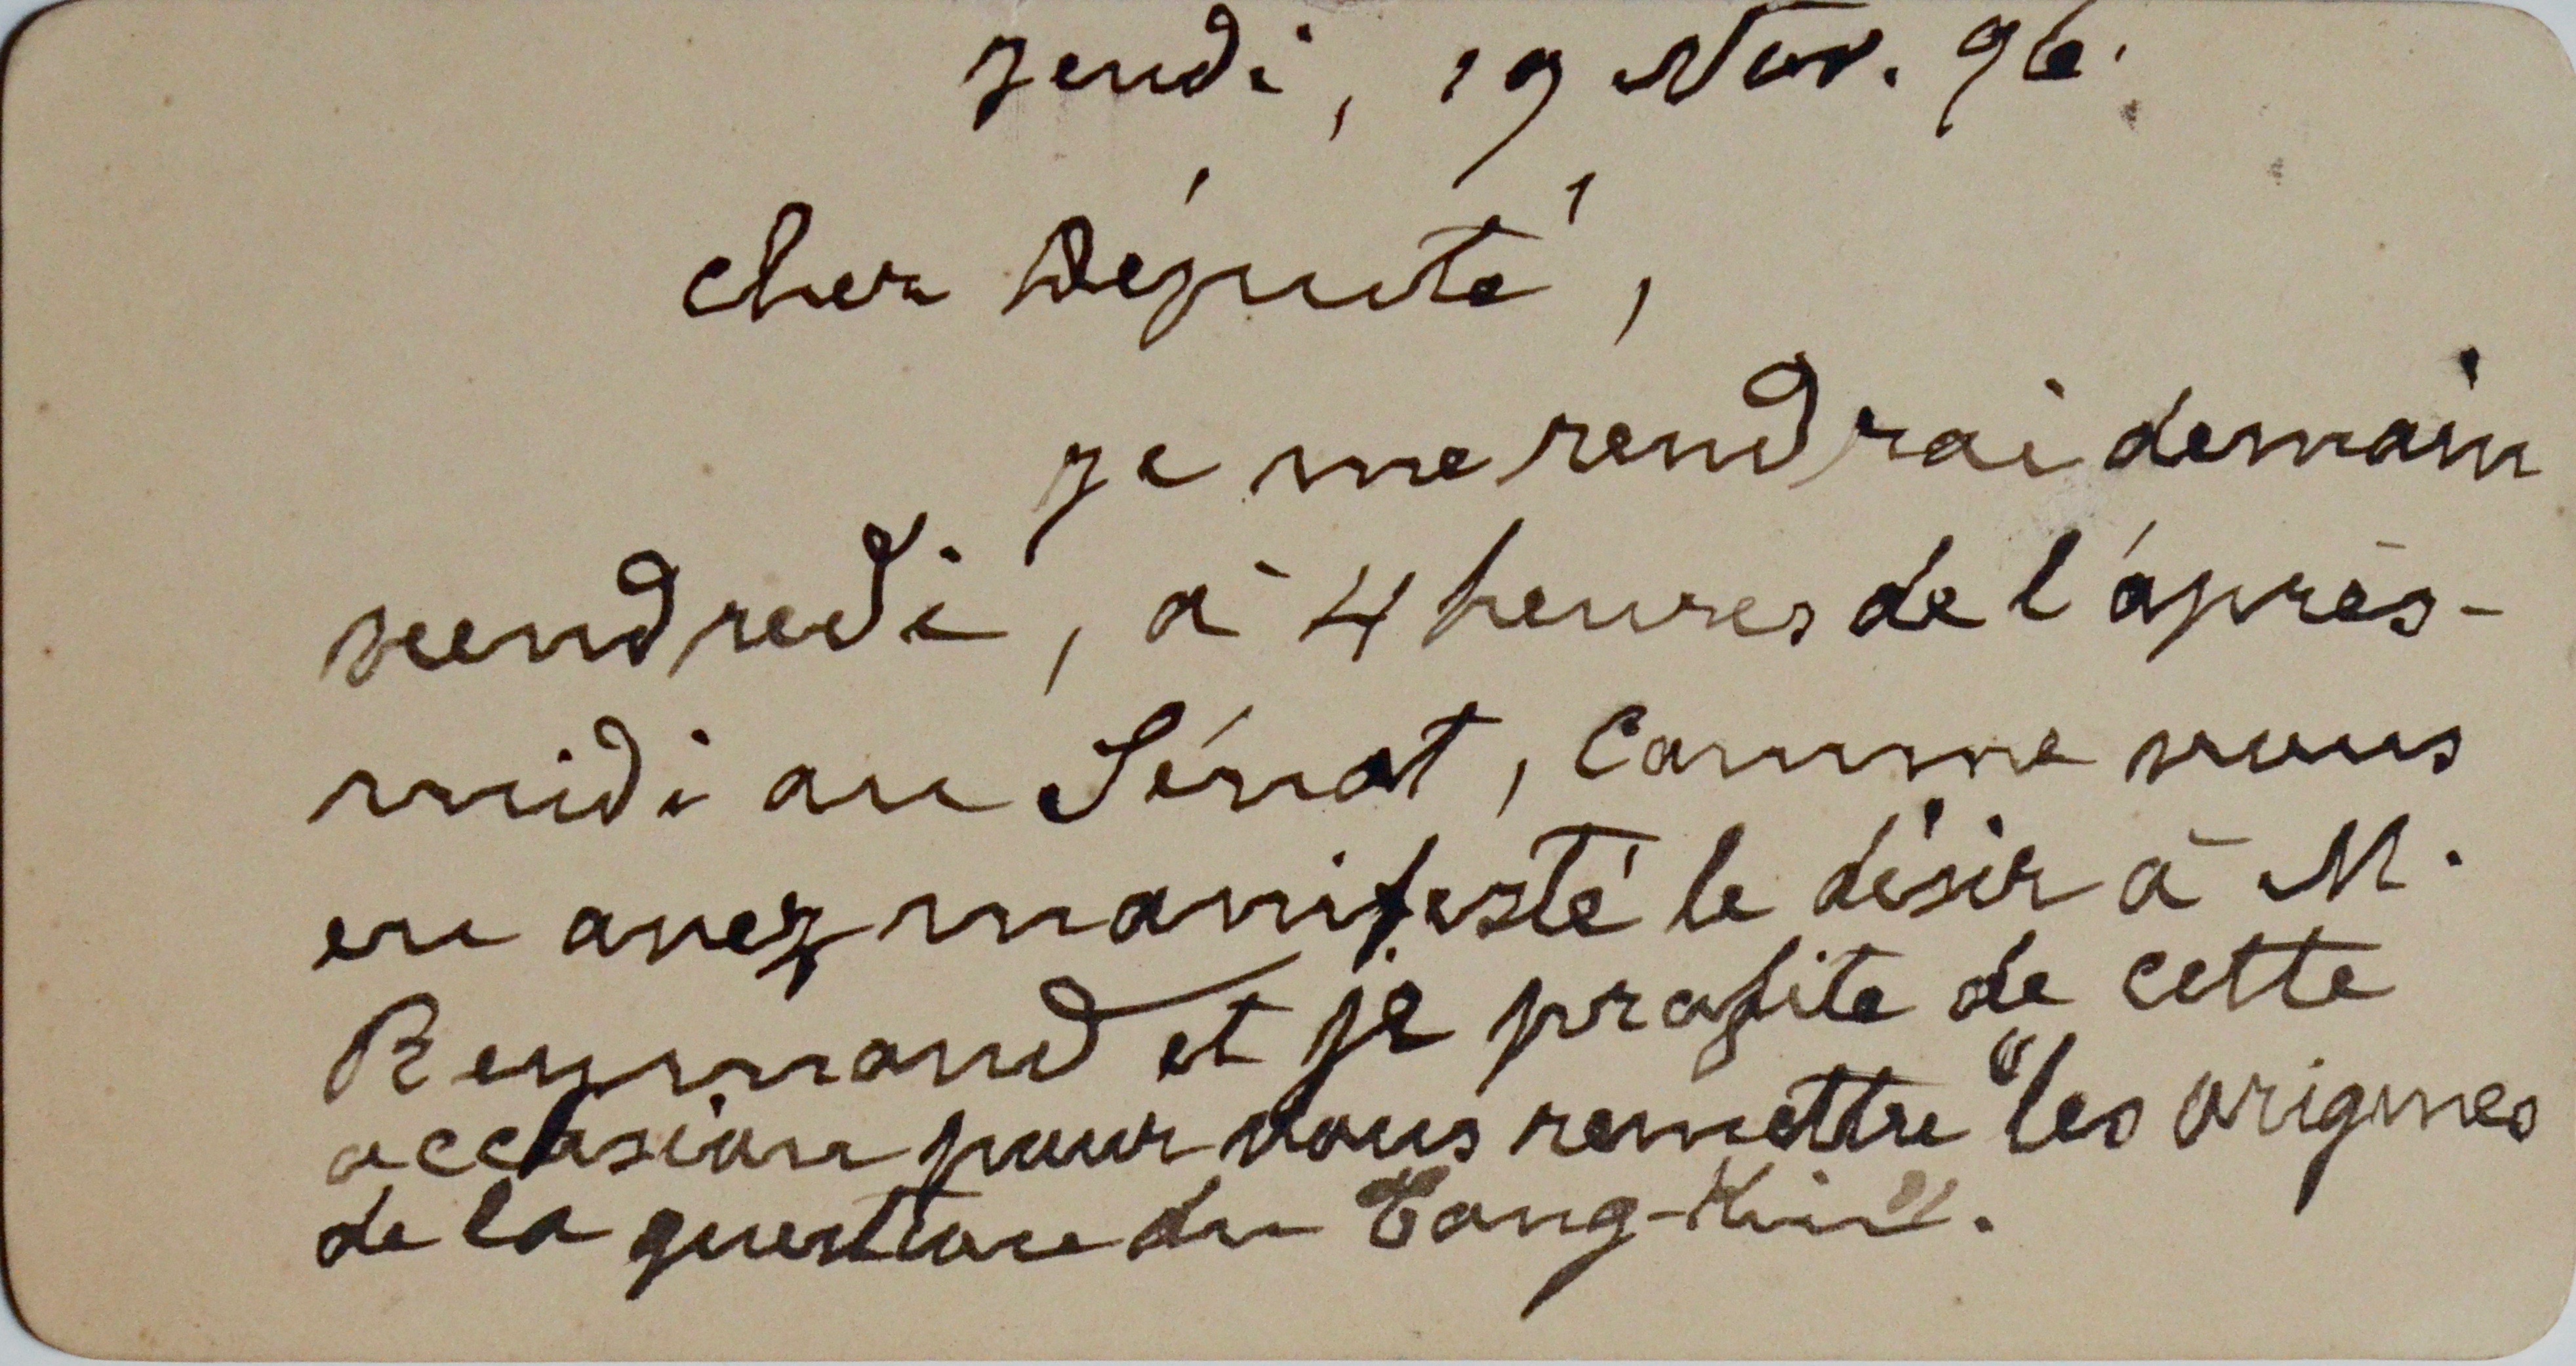 Jeudi, 19 Nov. 96.
Cher Député,
Je me rendrai demain
vendredi, à 4 heures de l'après-
midi au Sénat, comme vous
en avez manifesté le désir à M.
Reymond et je profite de cette
occasion pour vous remettre "les origines
de la question du Tong-Kin".